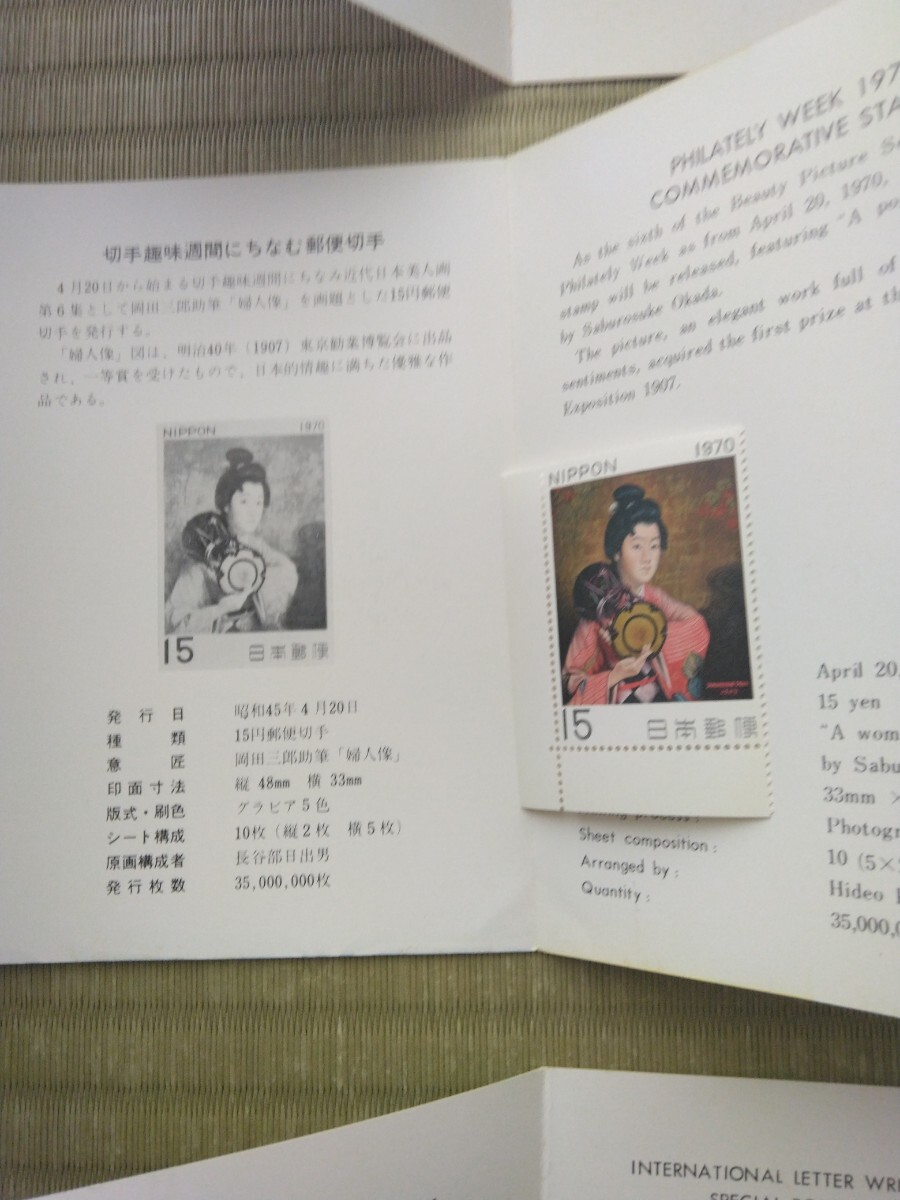 切手趣味週間にちなむ郵便切手
4月20日から始まる切手趣味週間にちなみ近代日本美人画
第6集として岡田三郎助筆「婦人像」を画題とした15円郵便
切手を発行する。
「婦人像」図は、明治40年（1907）東京勧業博覧会に出品
され、一等賞を受けたもので、日本的情趣に満ちた優雅な作
品である。
NIPPON 1970
15 日本郵便
発行日 昭和45年4月20日
種類 15円郵便切手
意匠 岡田三郎助筆「婦人像」
印面寸法 縦 48mm 横 33mm
版式・刷色 グラビア5色
シート構成 10枚（縦2枚 横5枚）
原画構成者 長谷部日出男
発行枚数 35,000,000枚
PHILATELY WEEK 197
COMMEMORATIVE STA
As the sixth of the Beauty Picture Se
Philately Week as from April 20, 1970,
stamp will be released, featuring "A po
by Saburosuke Okada.
The picture, an elegant work full of
sentiments, acquired the first prize at th
Exposition 1907.
NIPPON 1970
15 日本郵便
April 20,
15 yen
"A wom
by Sabu
33mm ×
process: Photogr
Sheet composition: 10 (5×
Arranged by: Hideo
Quantity: 35,000,0
INTERNATIONAL LETTER WRI